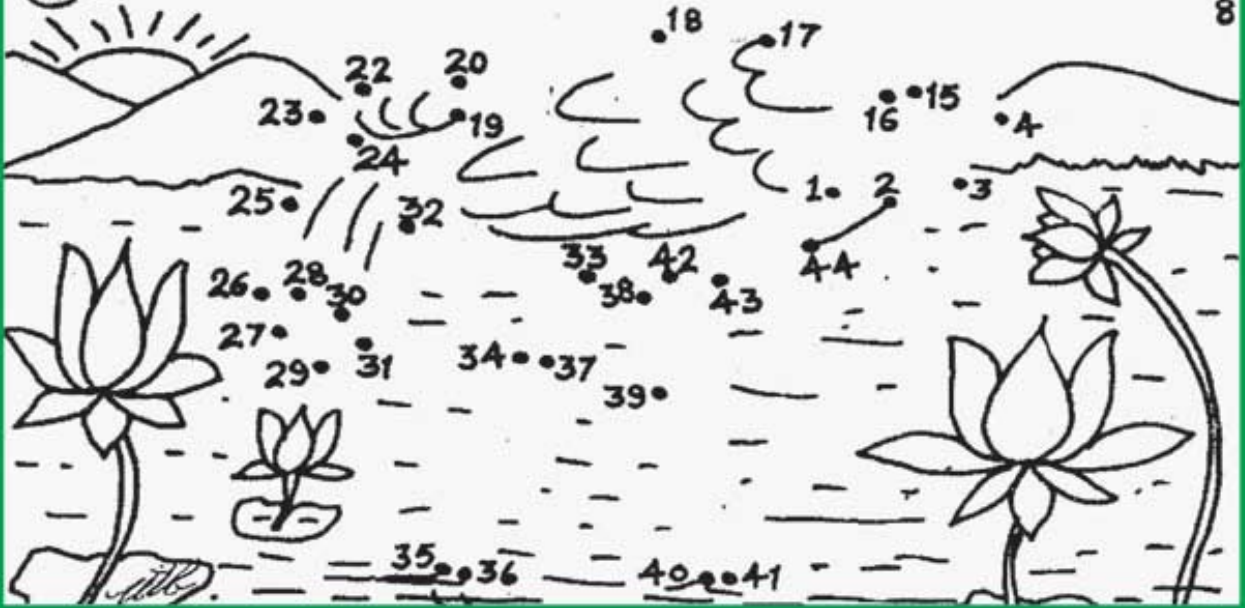 8
18
17
22 20
23 19
24
16 15
4
25 32
1 2 3
44
33 42
26 28 30 38 43
27
29 31 34 37
39
35 36 40 41